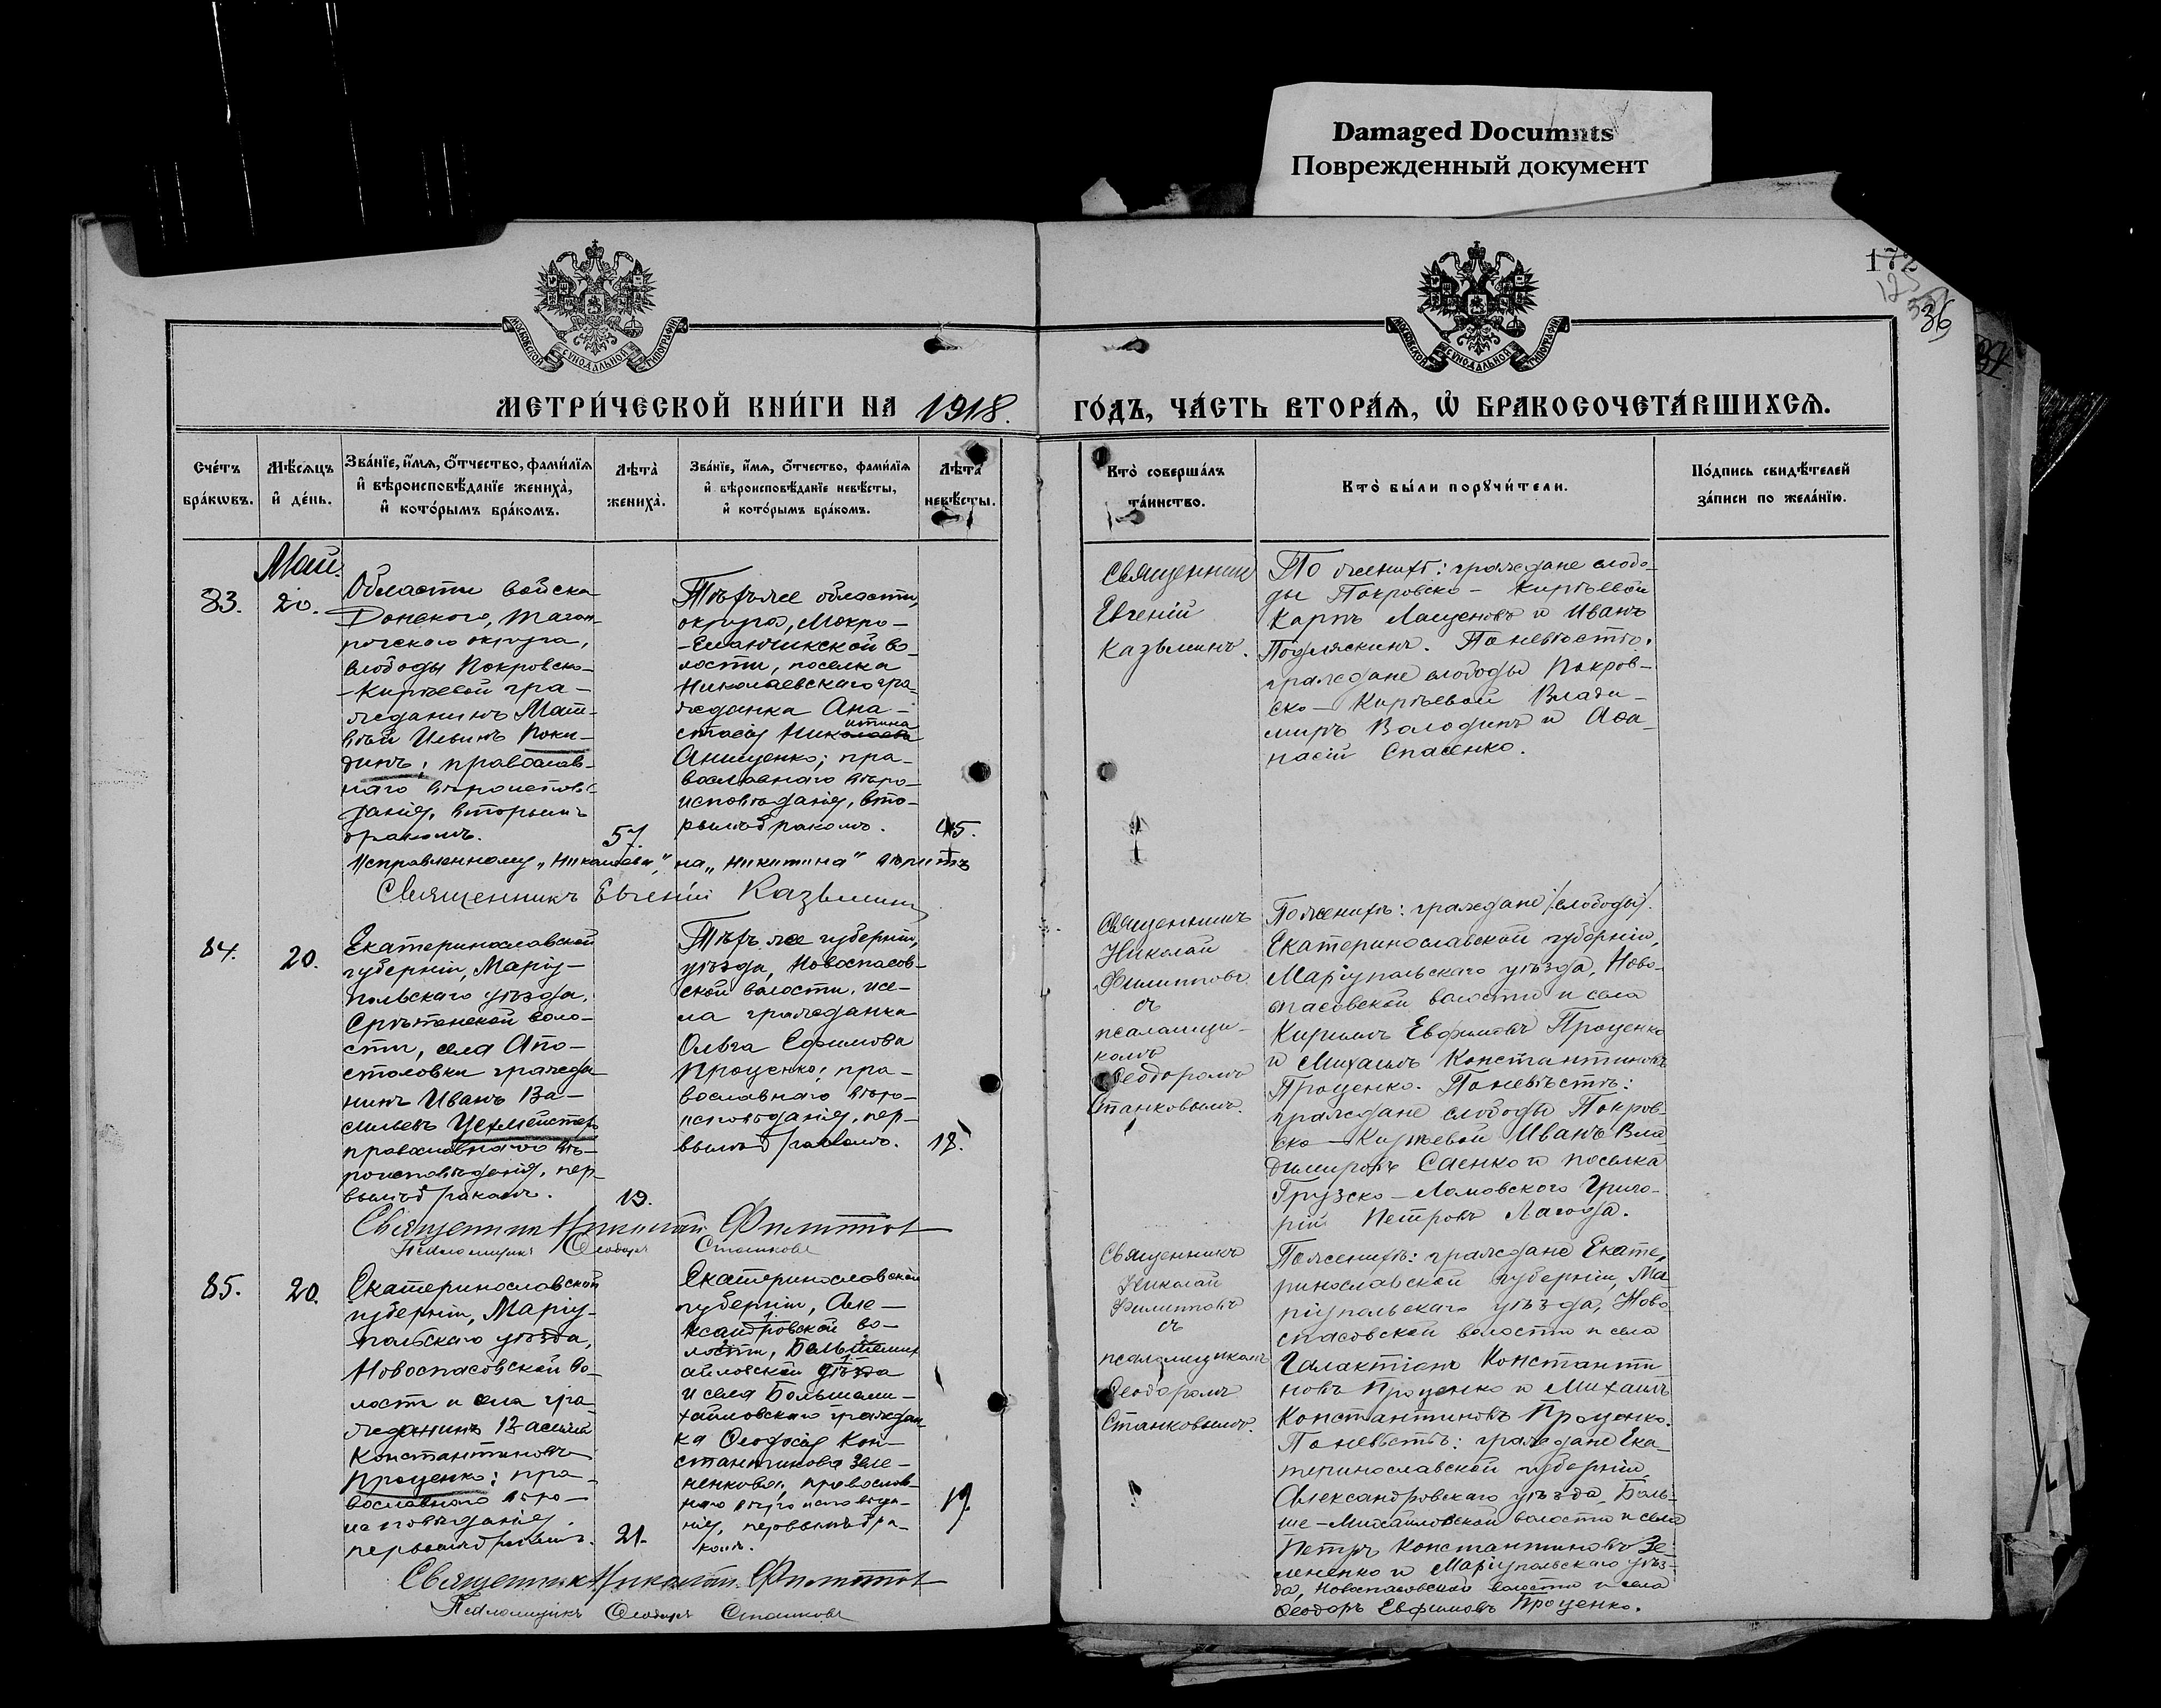 Damaged Documnts
Поврежденный документ
172
36
МОСКОВСКОЙ СѴНОДАЛЬНОЙ ТИПОГРАФІИ
МОСКОВСКОЙ СѴНОДАЛЬНОЙ ТИПОГРАФІИ
МЕТРИ́ЧЕСКОЙ КНИ́ГИ НА 1918.
ГО́ДЪ, ЧА́СТЬ ВТОРА́Ѧ, Ѡ҆ БРАКОСОЧЕТА́ВШИХСѦ.
Сче́тъ
бра́кѡвъ.
Мѣ́сѧцъ
и҆ де́нь.
Зва́нїе, и҆́мѧ, ѻ҆́тчество, фами́лїѧ
и҆ вѣроисповѣ́данїе жениха̀,
и҆ кото́рымъ бра́комъ.
Лѣта̀
жениха̀.
Зва́нїе, и҆́мѧ, ѻ҆́тчество, фами́лїѧ
и҆ вѣроисповѣ́данїе невѣ́сты,
и҆ кото́рымъ бра́комъ.
Лѣта̀
невѣ́сты.
Кто̀ соверша́лъ
та́инство.
Кто̀ бы́ли порꙋчи́тели.
По́дпись свидѣ́телей
за́писи по жела́нїю.
Май.
83.
20.
Области войска
Донского, Таган-
рогскаго округа,
слободы Покровско-
-Кирѣевой гра-
жданинъ Мат-
вѣй Ильинъ Поки-
динъ, православ-
наго вѣроисповѣ-
данія, вторымъ
бракомъ.
57.
Тѣхъ же области,
округа, Мокро-
-Еланчикской во-
лости, поселка
Николаевскаго гра-
жданка Ана-
стасія Николаева
итина
Анищенко; пра-
вославнаго вѣро-
исповѣданія, вто-
рымъ бракомъ.
45.
Исправленному „Николаева" на „Никитина" вѣрить
Священникъ Евгеній Казьминъ
Священникъ
Евгеній
Казьминъ.
По женихѣ: граждане слобо-
ды Покровско-Кирѣевой
Карпъ Лащеновъ и Иванъ
Подляскинъ. По невѣстѣ:
граждане слободы Покров-
ско-Кирѣевой Влади-
миръ Володинъ и Аѳа-
насій Спасенко.
84.
20.
Екатеринославской
губерніи, Маріу-
польскаго уѣзда,
Срѣтенской воло-
сти, села Апо-
столовки гражда-
нинъ Иванъ Ва-
сильевъ Цехмейстеръ
православнаго вѣ-
роисповѣданія, пер-
вымъ бракомъ.
19.
Тѣхъ же губерніи,
уѣзда, Новоспасов-
ской волости, и се-
ла гражданка
Ольга Ефимова
Проценко; пра-
вославнаго вѣро-
исповѣданія, пер-
вымъ бракомъ.
18.
Священникъ Николай Филиппов
Псаломщикъ Ѳеодоръ Станковъ
Священникъ
Николай
Филипповъ
съ
псаломщи-
комъ
Ѳеодоромъ
Станковымъ.
По женихѣ: граждане /слободы/
Екатеринославской губерніи,
Маріупольскаго уѣзда, Ново-
спасовской волости и села
Кириллъ Евфимовъ Проценко
и Михаилъ Константиновъ
Проценко. По невѣстѣ:
граждане слободы Покров-
ско-Кирѣевой Иванъ Вла-
димировъ Саенко и поселка
Грузско-Ломовского Григо-
рій Петровъ Лагода.
85.
20.
Екатеринославской
губерніи, Маріу-
польскаго уѣзда,
Новоспасовской во-
лости и села гра-
жданинъ Василій
Константиновъ
Проценко; пра-
вославнаго вѣро-
исповѣданія,
первымъ бракомъ.
21.
Екатеринославской
губерніи, Але-
ксандровской во-
лости, Больше-Мих
айловской уѣзда
и села Большеми-
хайловскаго граждан
ка Ѳеодосія Кон-
стантинова Зеле-
ненкова, православ-
наго вѣроисповѣда-
нія, первымъ бра-
комъ.
19.
Священникъ Николай Филиппов
Псаломщикъ Ѳеодоръ Станковъ
Священникъ
Николай
Филипповъ
съ
псаломщикомъ
Ѳеодоромъ
Станковымъ.
По женихѣ: граждане Екате-
ринославской губерніи, Ма-
ріупольскаго уѣзда, Ново
спасовской волости и села
Галактіонъ Константи
новъ Проценко и Михаилъ
Константиновъ Проценко.
По невѣстѣ: граждане Ека-
теринославской губерніи
Александровскаго уѣзда, Боль-
ше-Михайловской волости и села
Петръ Константиновъ Зе-
лененко и Маріупольскаго уѣз-
да, Новоспасовской волости и села
Ѳеодоръ Евфимовъ Проценко.